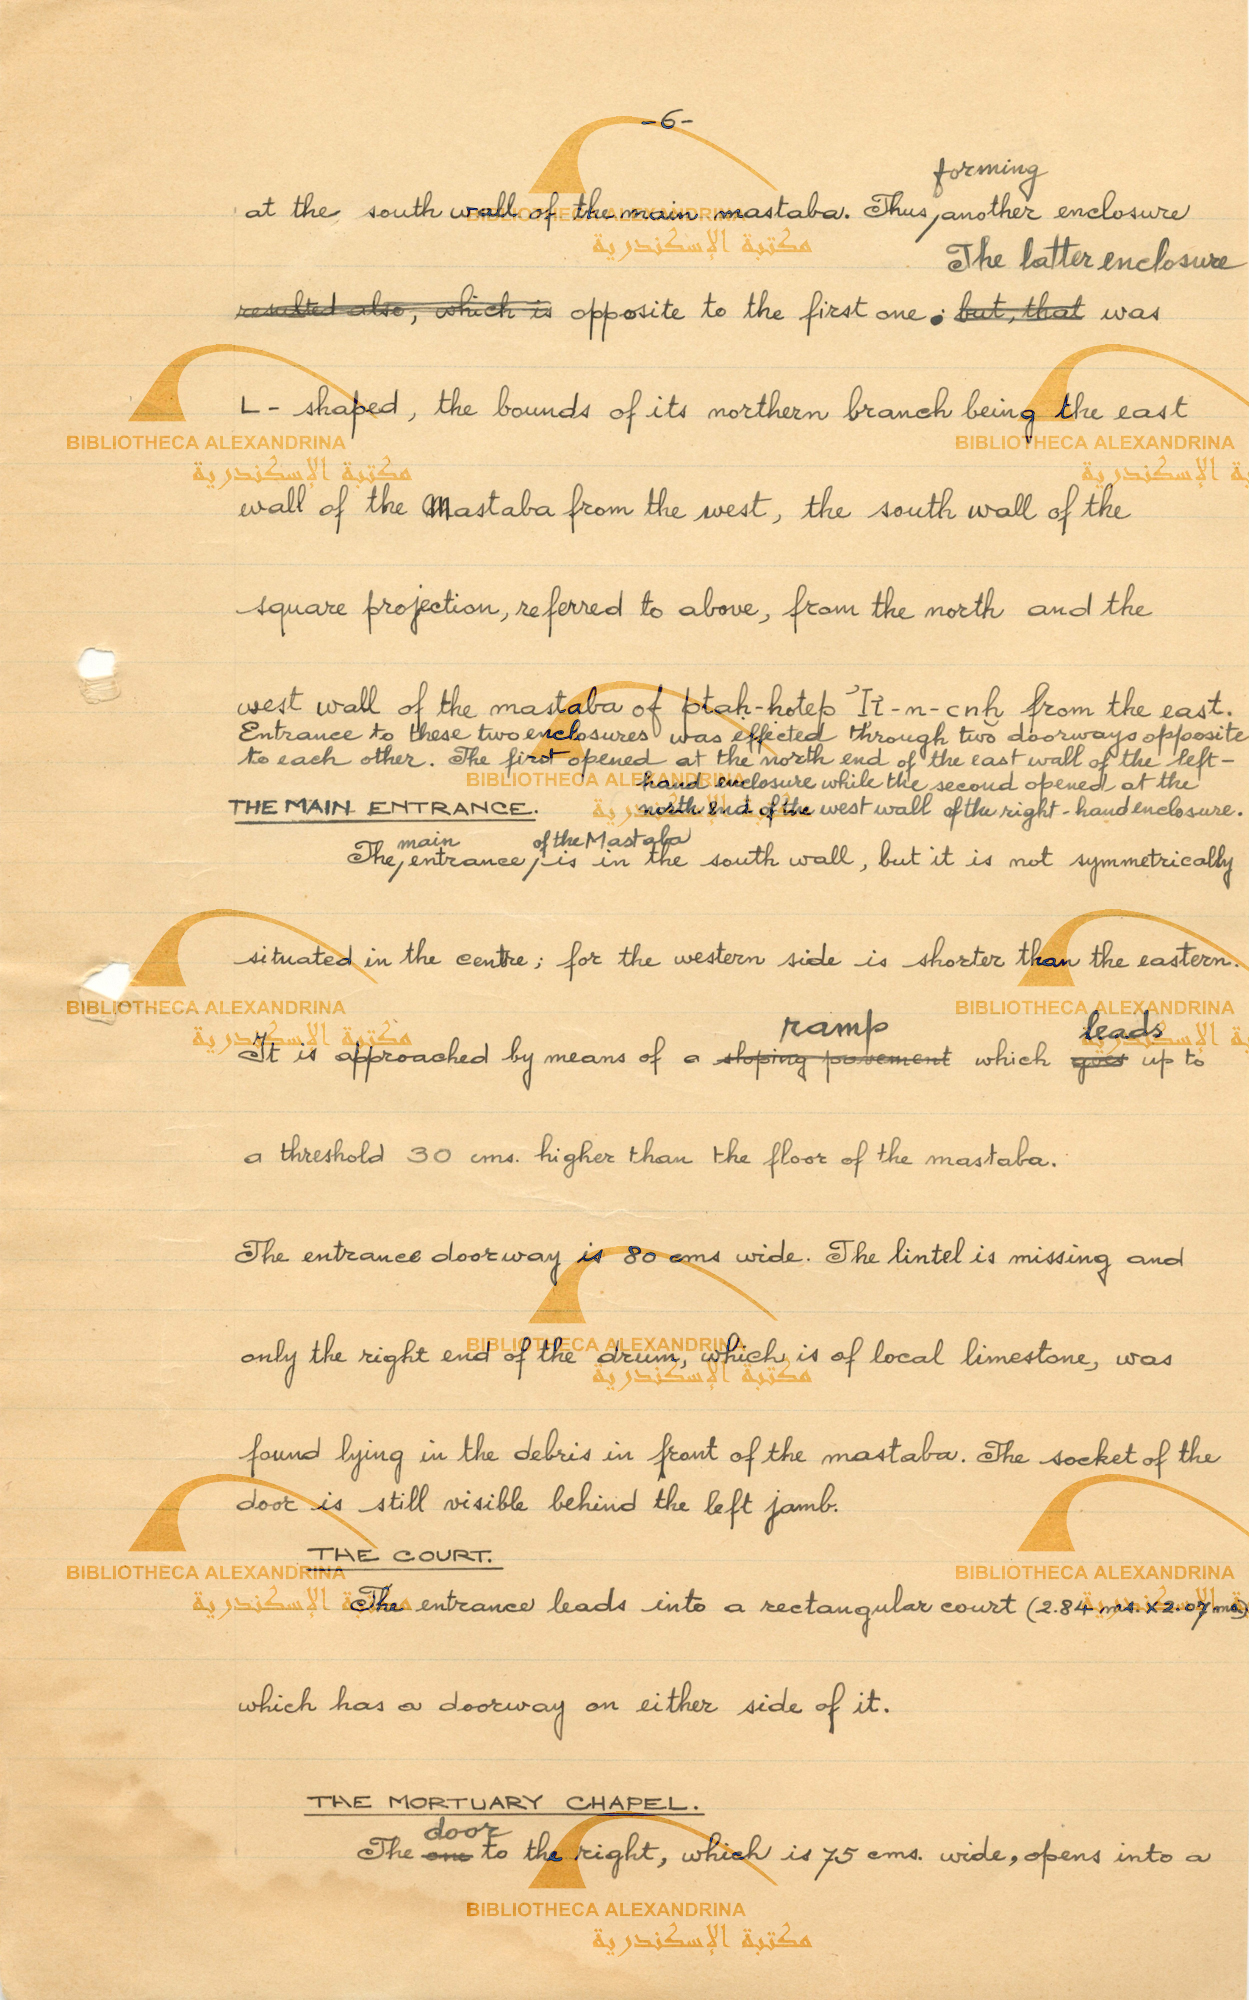 -6-
forming
at the south wall of the main mastaba. Thus, another enclosure
The latter enclosure
resulted also, which is opposite to the first one. but, that was
L - shaped, the bounds of its northern branch being the east
wall of the Mastaba from the west, the south wall of the
square projection, referred to above, from the north and the
west wall of the mastaba of Ptaḥ-ḥotep 'Iï-n-cnḫ from the east.
Entrance to these two enclosures was effected through two doorways opposite
to each other. The first opened at the north end of the east wall of the left-
hand enclosure while the second opened at the
north end of the west wall of the right-hand enclosure.
THE MAIN ENTRANCE.
main of the Mastaba
The, entrance, is in the south wall, but it is not symmetrically
situated in the centre; for the western side is shorter than the eastern.
ramp leads
It is approached by means of a sloping pavement which goes up to
a threshold 30 cms. higher than the floor of the mastaba.
The entrance doorway is 80 cms wide. The lintel is missing and
only the right end of the drum, which is of local limestone, was
found lying in the debris in front of the mastaba. The socket of the
door is still visible behind the left jamb.
THE COURT.
The entrance leads into a rectangular court (2.84 ms. x 2.07 ms.)
which has a doorway on either side of it.
THE MORTUARY CHAPEL.
door
The one to the right, which is 75 cms. wide, opens into a
BIBLIOTHECA ALEXANDRINA
مكتبة الإسكندرية